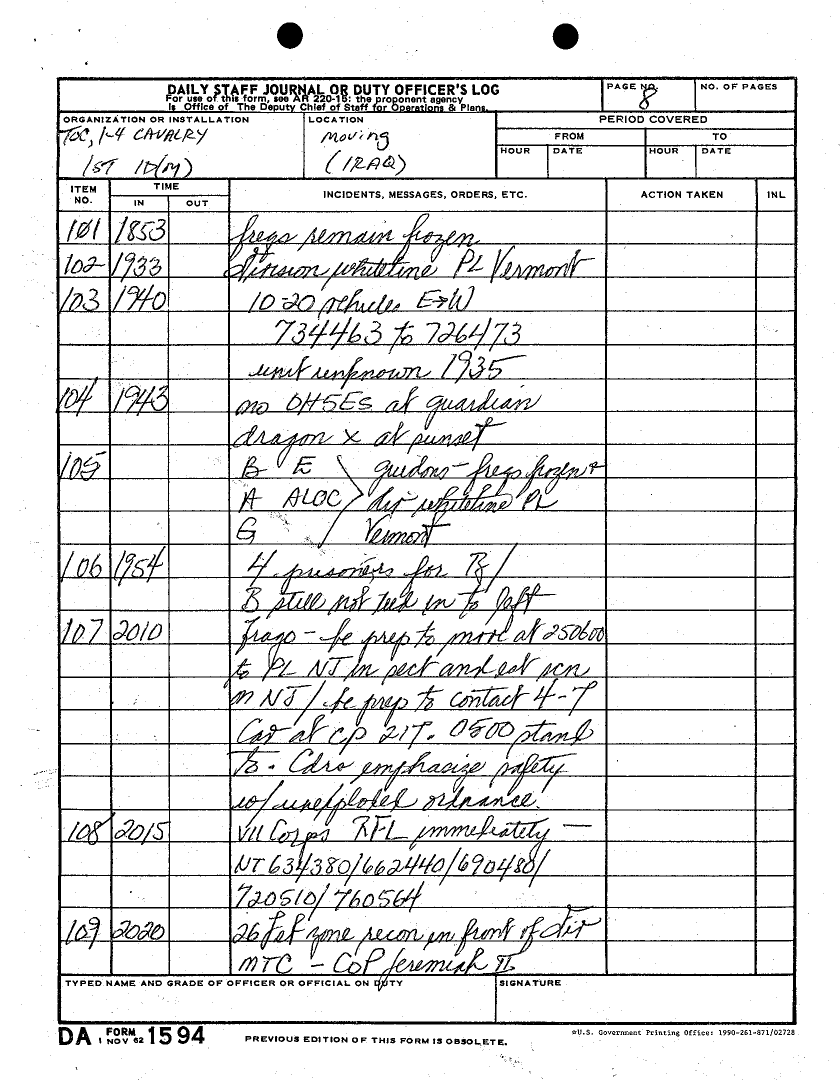 DAILY STAFF JOURNAL OR DUTY OFFICER'S LOG
For use of this form, see AR 220-15: the proponent agency
is Office of The Deputy Chief of Staff for Operations & Plans.
PAGE NO.
8
NO. OF PAGES
ORGANIZATION OR INSTALLATION
TOC, 1-4 CAVALRY
1ST ID(M)
LOCATION
moving
(IRAQ)
PERIOD COVERED
FROM
TO
HOUR
DATE
HOUR
DATE
ITEM NO.
TIME
IN
OUT
INCIDENTS, MESSAGES, ORDERS, ETC.
ACTION TAKEN
INL
101 1853 freqs remain frozen
102 1933 division whiteline PL Vermont
103 1940 10-20 vehicles E→W
734463 to 726473
unit unknown 1935
104 1943 no OH5Es at guardian
dragon x at sunset
105 B E \ guidons - freqs frozen +
A ALOC > div whiteline PL
G / Vermont
106 1954 4 prisoners for B/
B still not tied in to left
107 2010 Frago - be prep to move at 250600
to PL NJ in sect and est scn
on NJ / be prep to contact 4-7
Cav at CP 217. 0500 stand
to. Cdrs emphasize safety
w/unexploded ordnance.
108 2015 VII Corps RFL immediately —
NT 634380/662440/690480/
720510/760564
109 2020 26 Feb zone recon in front of div
MTC - CoP Jeremiah II
TYPED NAME AND GRADE OF OFFICER OR OFFICIAL ON DUTY
SIGNATURE
DA FORM 1594
1 NOV 62
PREVIOUS EDITION OF THIS FORM IS OBSOLETE.
☆U.S. Government Printing Office: 1990-261-871/02728